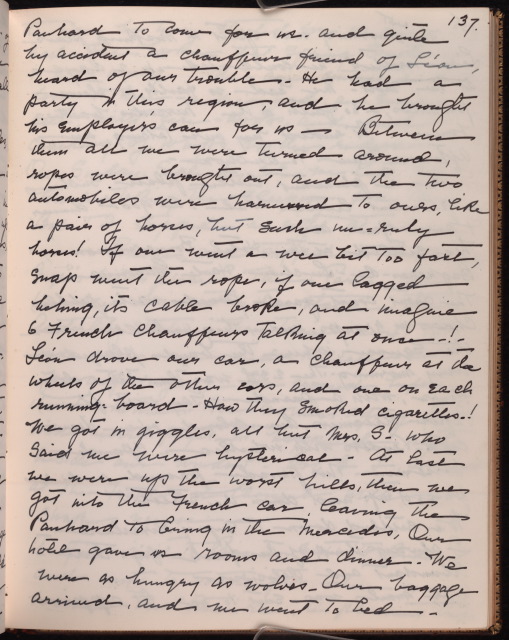 137.
Panhard to come for us - and quite
by accident a chauffeur friend of Léon,
heard of our trouble - He had a
party in this region, and he brought
his employer's car for us - Between
them all we were turned around,
ropes were brought out, and the two
automobiles were harnessed to ours, like
a pair of horses, but such un-ruly
horses! If one went a wee bit too fast,
snap went the rope, if one lagged
behing, its cable broke, and imagine
6 French chauffeurs talking at once -!-
Léon drove our car, a chauffeur at the
wheels of the other cars, and one on each
running-board - How they smoked cigarettes-!
We got in giggles, all but Mrs. S- who
said we were hysterical - At last
we were up the worst hills, then we
got into the French car, leaving the
Panhard to bring in the Mercedes. Our
hotel gave us rooms and dinner - We
were as hungry as wolves - Our baggage
arrived, and we went to bed -